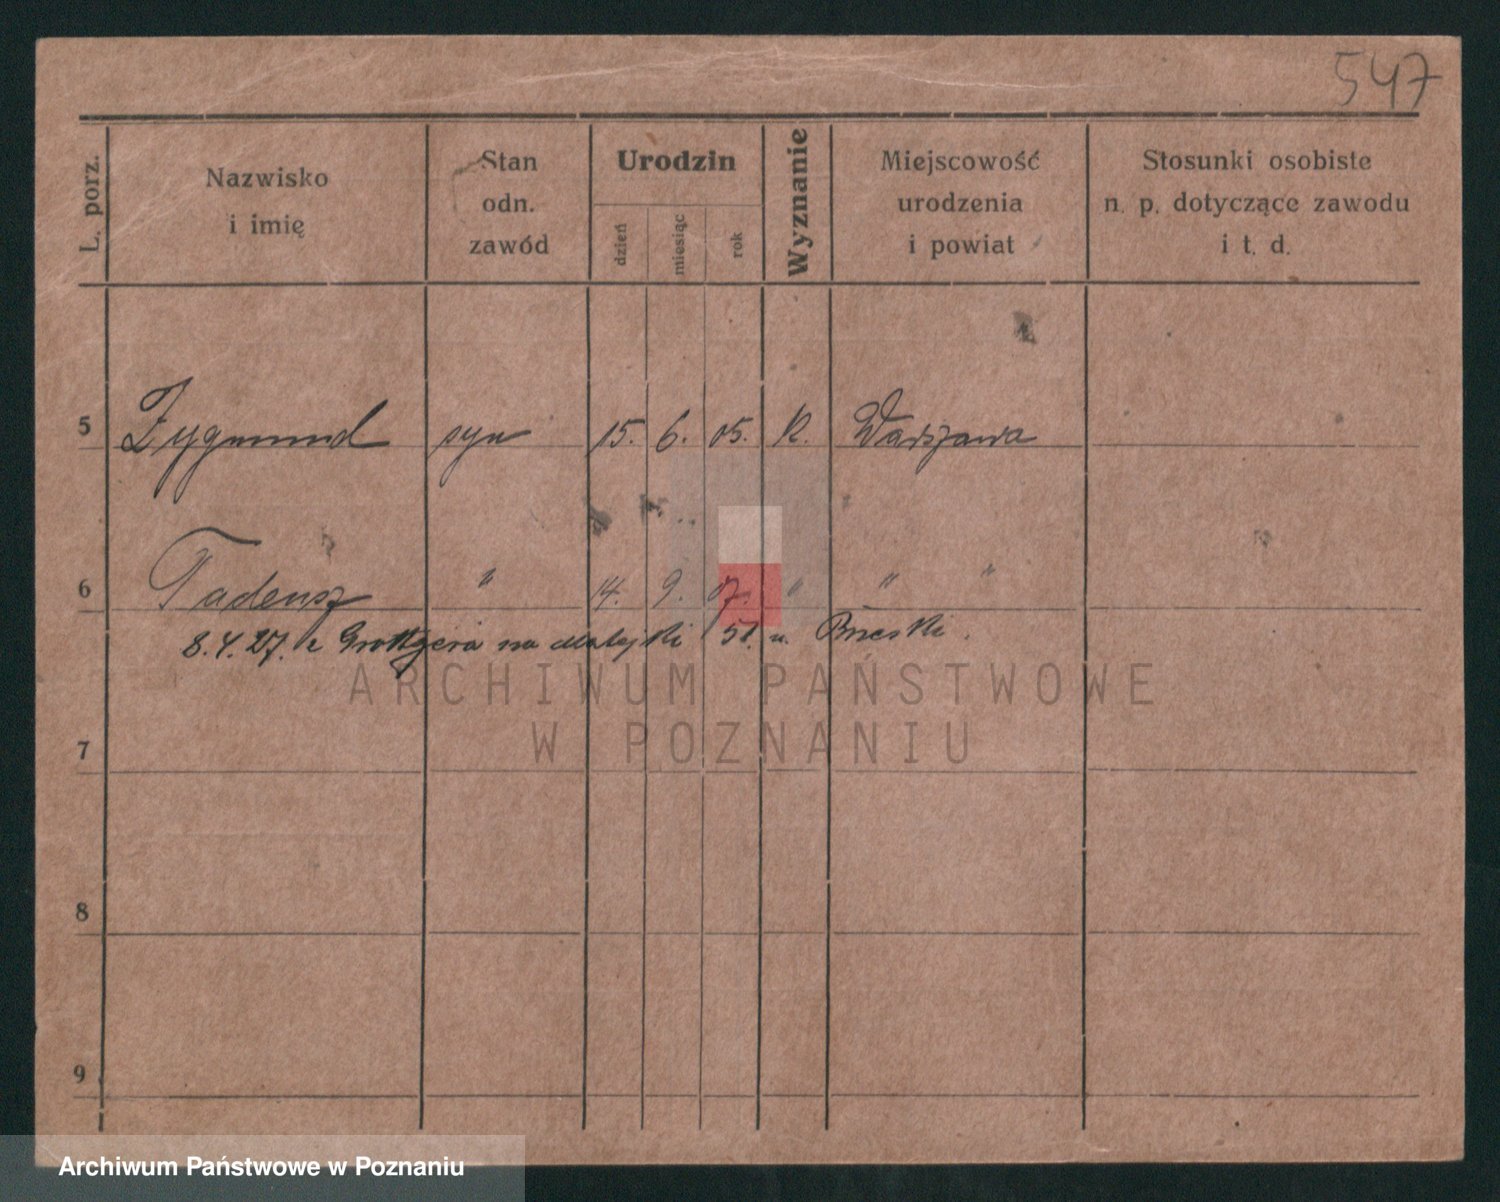 547
L. porz.
Nazwisko
i imię
Stan
odn.
zawód
Urodzin
dzień
miesiąc
rok
Wyznanie
Miejscowość
urodzenia
i powiat
Stosunki osobiste
n. p. dotyczące zawodu
i t. d.
5 Zygmund syn 15. 6. 05. K. Warszawa
6 Tadeusz " 14. 9. 07. " " "
8.4.27. z Grottgera na Matejki 51. u. Brzeski.
ARCHIWUM PAŃSTWOWE
W POZNANIU
7
8
9
Archiwum Państwowe w Poznaniu